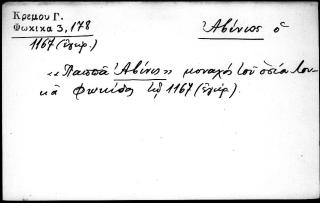 Κρεμου Γ.
Φωκικα 3, 178
1167 (ἔγγρ.)
Ἀβίνιος ὁ
«Παππᾶ Ἀβίνιο» μοναχός τοῦ ὁσία Λου-
κᾶ Φωκίδος τῷ 1167 (ἔγγρ.).